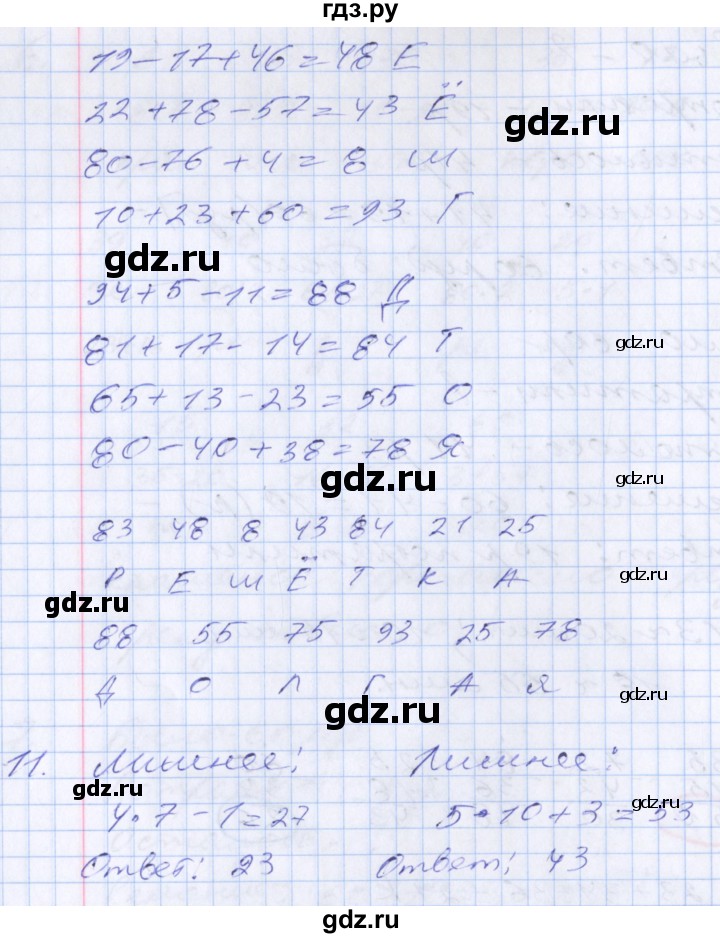 гдз.ру
19-17+46=48 Е
22+78-57=43 Ё
gdz.ru
80-76+4=8 Ш
10+23+60=93 Г
gdz.ru
94+5-11=88 Д
81+17-14=84 Т
gdz.ru
65+13-23=55 О
80-40+38=78 Я
gdz.ru
gdz.ru
83 48 8 43 84 21 25
Р Е Ш Ё Т К А
gdz.ru
gdz.ru
88 55 75 93 25 78
Д О Л Г А Я
gdz.ru
gdz.ru
11. Лишнее: Лишнее:
gdz.ru
gdz.ru
4·7-1=27 5·10+3=53
Ответ: 23 Ответ: 43
gdz.ru